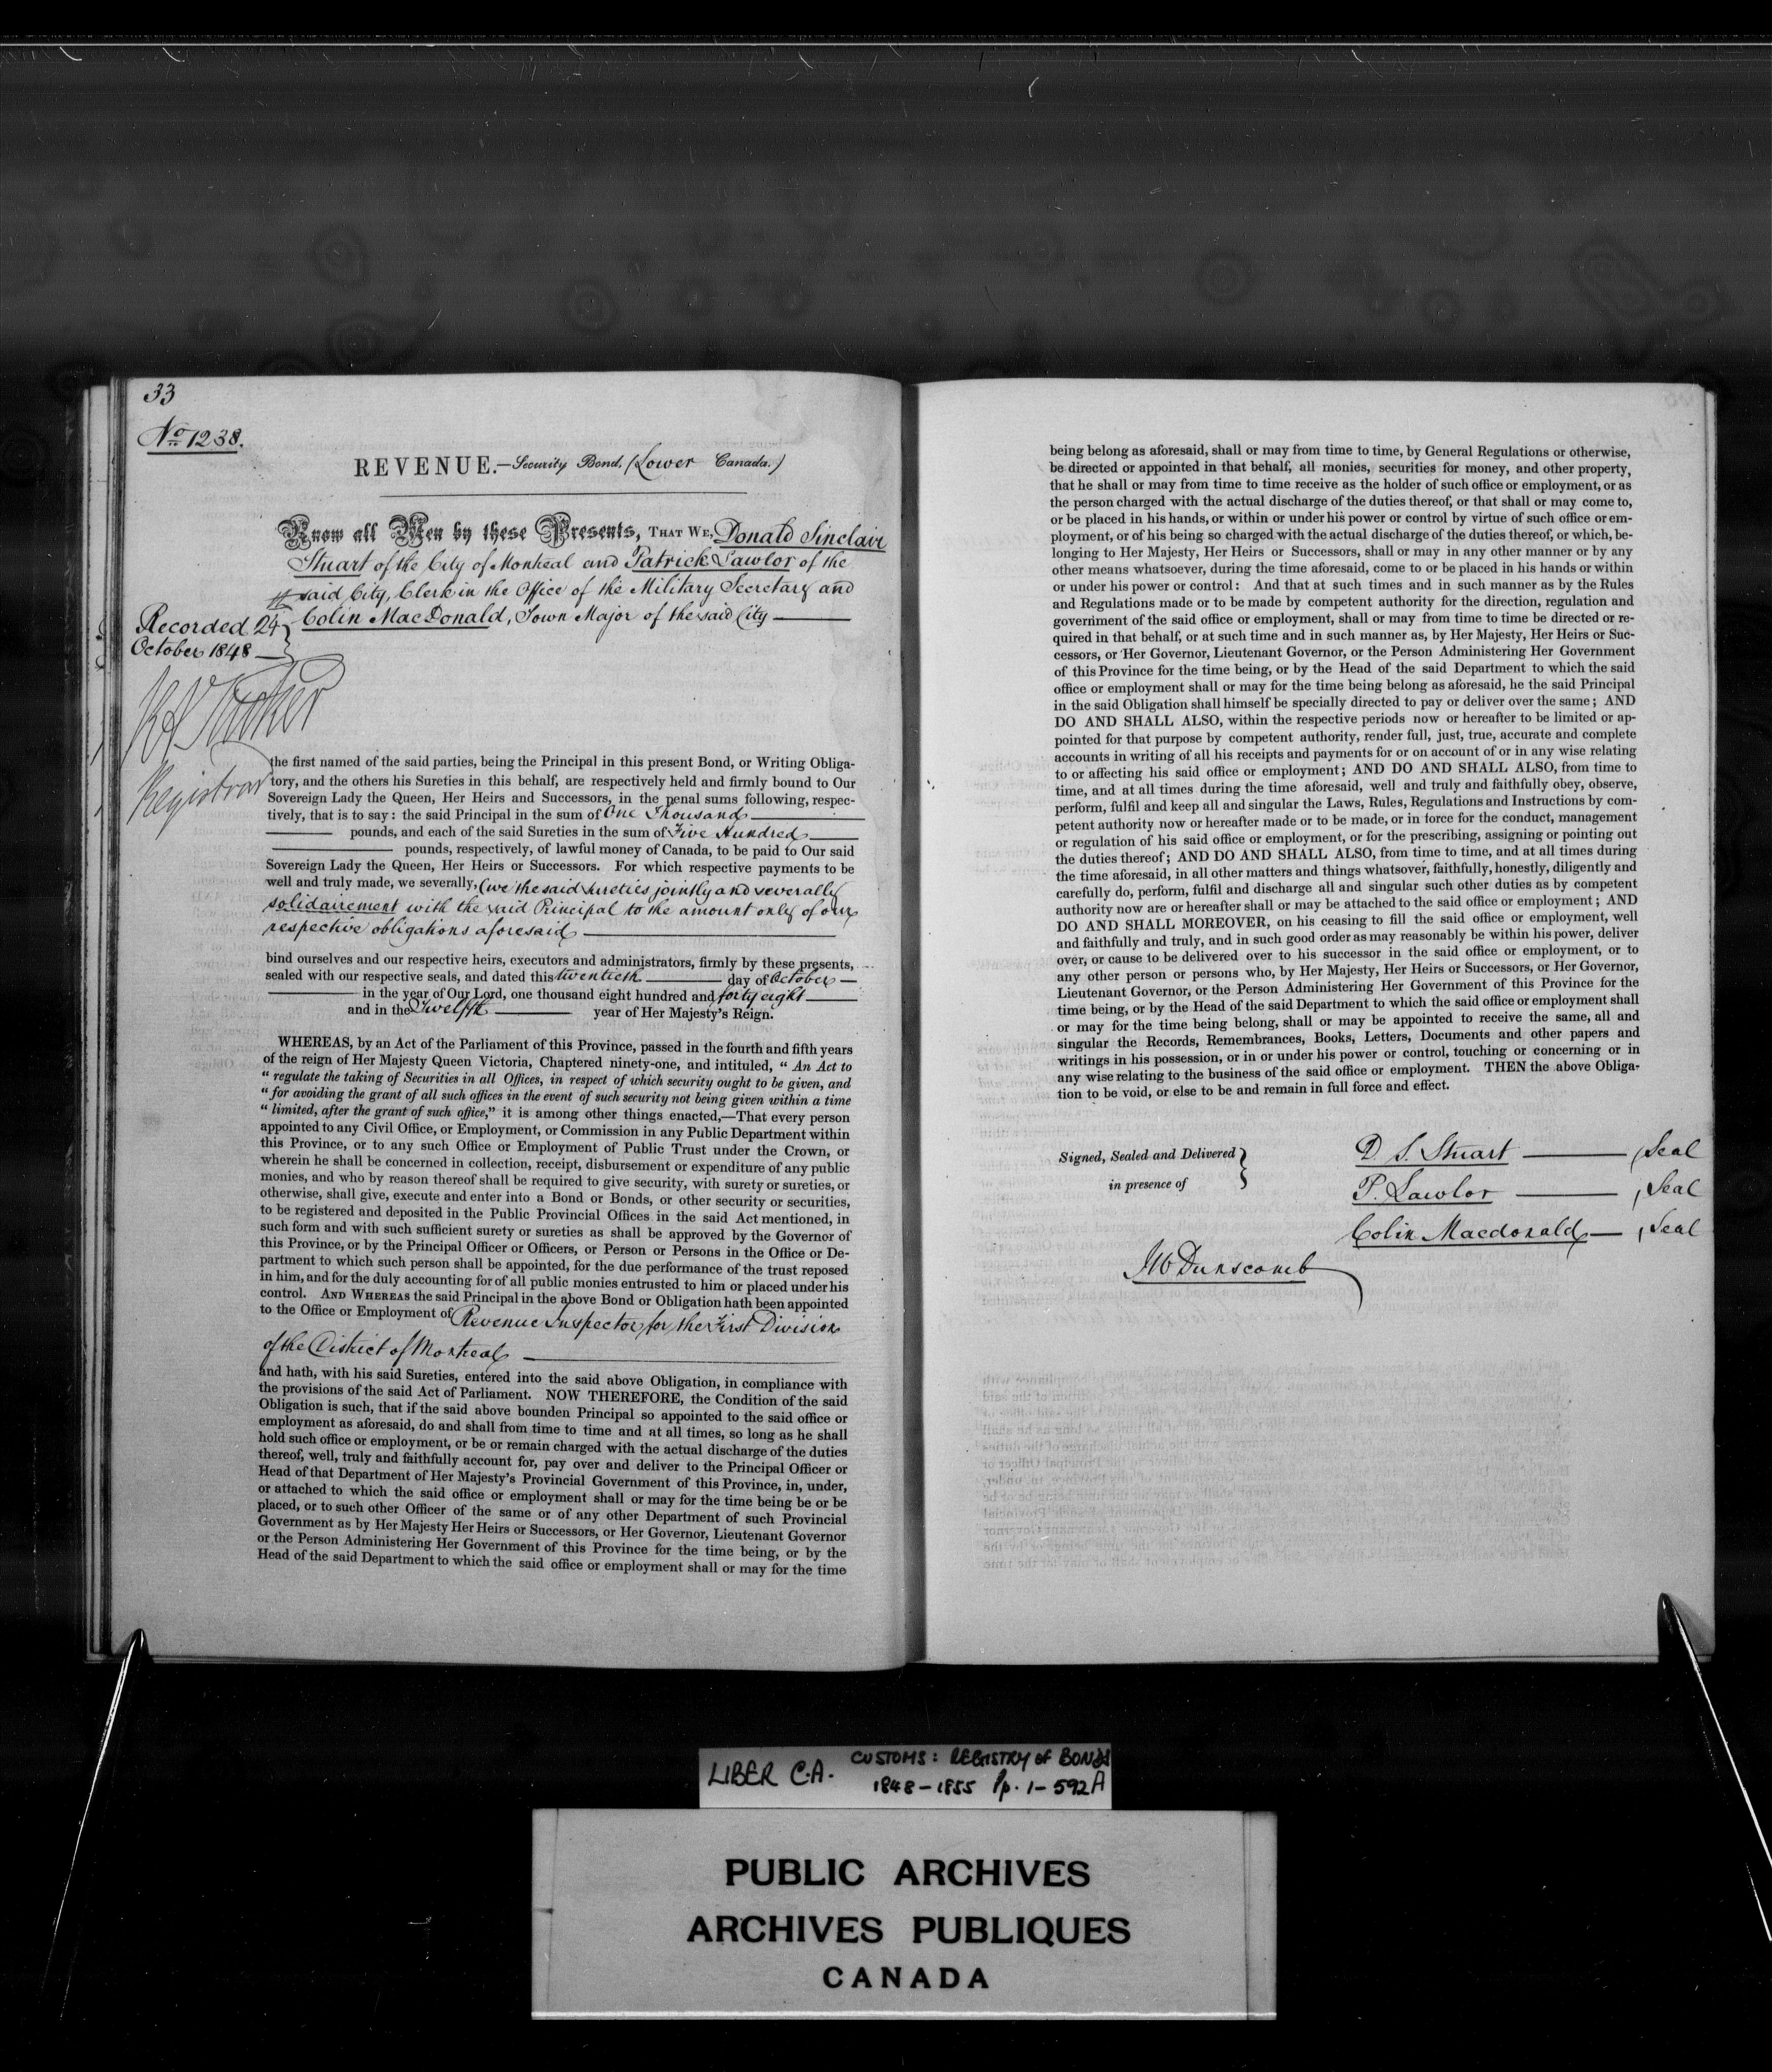 33
No 1238.
REVENUE.—Security Bond, (Lower Canada.)
Know all Men by these Presents, THAT WE, Donald Sinclair
Stuart of the City of Montreal and Patrick Lawlor of the
said City, Clerk in the Office of the Military Secretary and
Colin MacDonald, Town Major of the said City
Recorded 24
October 1848
Registrar
the first named of the said parties, being the Principal in this present Bond, or Writing Obliga-
tory, and the others his Sureties in this behalf, are respectively held and firmly bound to Our
Sovereign Lady the Queen, Her Heirs and Successors, in the penal sums following, respec-
tively, that is to say: the said Principal in the sum of One Thousand
pounds, and each of the said Sureties in the sum of Five Hundred
pounds, respectively, of lawful money of Canada, to be paid to Our said
Sovereign Lady the Queen, Her Heirs or Successors. For which respective payments to be
well and truly made, we severally, (we the said sureties jointly and severally
solidairement with the said Principal to the amount only of our
respective obligations aforesaid
bind ourselves and our respective heirs, executors and administrators, firmly by these presents,
sealed with our respective seals, and dated this twentieth day of October
in the year of Our Lord, one thousand eight hundred and forty eight
and in the Twelfth year of Her Majesty's Reign.
WHEREAS, by an Act of the Parliament of this Province, passed in the fourth and fifth years
of the reign of Her Majesty Queen Victoria, Chaptered ninety-one, and intituled, " An Act to
" regulate the taking of Securities in all Offices, in respect of which security ought to be given, and
" for avoiding the grant of all such offices in the event of such security not being given within a time
" limited, after the grant of such office," it is among other things enacted,—That every person
appointed to any Civil Office, or Employment, or Commission in any Public Department within
this Province, or to any such Office or Employment of Public Trust under the Crown, or
wherein he shall be concerned in collection, receipt, disbursement or expenditure of any public
monies, and who by reason thereof shall be required to give security, with surety or sureties, or
otherwise, shall give, execute and enter into a Bond or Bonds, or other security or securities,
to be registered and deposited in the Public Provincial Offices in the said Act mentioned, in
such form and with such sufficient surety or sureties as shall be approved by the Governor of
this Province, or by the Principal Officer or Officers, or Person or Persons in the Office or De-
partment to which such person shall be appointed, for the due performance of the trust reposed
in him, and for the duly accounting for of all public monies entrusted to him or placed under his
control. AND WHEREAS the said Principal in the above Bond or Obligation hath been appointed
to the Office or Employment of Revenue Inspector for the First Division
of the District of Montreal
and hath, with his said Sureties, entered into the said above Obligation, in compliance with
the provisions of the said Act of Parliament. NOW THEREFORE, the Condition of the said
Obligation is such, that if the said above bounden Principal so appointed to the said office or
employment as aforesaid, do and shall from time to time and at all times, so long as he shall
hold such office or employment, or be or remain charged with the actual discharge of the duties
thereof, well, truly and faithfully account for, pay over and deliver to the Principal Officer or
Head of that Department of Her Majesty's Provincial Government of this Province, in, under,
or attached to which the said office or employment shall or may for the time being be or be
placed, or to such other Officer of the same or of any other Department of such Provincial
Government as by Her Majesty Her Heirs or Successors, or Her Governor, Lieutenant Governor
or the Person Administering Her Government of this Province for the time being, or by the
Head of the said Department to which the said office or employment shall or may for the time
being belong as aforesaid, shall or may from time to time, by General Regulations or otherwise,
be directed or appointed in that behalf, all monies, securities for money, and other property,
that he shall or may from time to time receive as the holder of such office or employment, or as
the person charged with the actual discharge of the duties thereof, or that shall or may come to,
or be placed in his hands, or within or under his power or control by virtue of such office or em-
ployment, or of his being so charged with the actual discharge of the duties thereof, or which, be-
longing to Her Majesty, Her Heirs or Successors, shall or may in any other manner or by any
other means whatsoever, during the time aforesaid, come to or be placed in his hands or within
or under his power or control: And that at such times and in such manner as by the Rules
and Regulations made or to be made by competent authority for the direction, regulation and
government of the said office or employment, shall or may from time to time be directed or re-
quired in that behalf, or at such time and in such manner as, by Her Majesty, Her Heirs or Suc-
cessors, or Her Governor, Lieutenant Governor, or the Person Administering Her Government
of this Province for the time being, or by the Head of the said Department to which the said
office or employment shall or may for the time being belong as aforesaid, he the said Principal
in the said Obligation shall himself be specially directed to pay or deliver over the same; AND
DO AND SHALL ALSO, within the respective periods now or hereafter to be limited or ap-
pointed for that purpose by competent authority, render full, just, true, accurate and complete
accounts in writing of all his receipts and payments for or on account of or in any wise relating
to or affecting his said office or employment; AND DO AND SHALL ALSO, from time to
time, and at all times during the time aforesaid, well and truly and faithfully obey, observe,
perform, fulfil and keep all and singular the Laws, Rules, Regulations and Instructions by com-
petent authority now or hereafter made or to be made, or in force for the conduct, management
or regulation of his said office or employment, or for the prescribing, assigning or pointing out
the duties thereof; AND DO AND SHALL ALSO, from time to time, and at all times during
the time aforesaid, in all other matters and things whatsover, faithfully, honestly, diligently and
carefully do, perform, fulfil and discharge all and singular such other duties as by competent
authority now are or hereafter shall or may be attached to the said office or employment; AND
DO AND SHALL MOREOVER, on his ceasing to fill the said office or employment, well
and faithfully and truly, and in such good order as may reasonably be within his power, deliver
over, or cause to be delivered over to his successor in the said office or employment, or to
any other person or persons who, by Her Majesty, Her Heirs or Successors, or Her Governor,
Lieutenant Governor, or the Person Administering Her Government of this Province for the
time being, or by the Head of the said Department to which the said office or employment shall
or may for the time being belong, shall or may be appointed to receive the same, all and
singular the Records, Remembrances, Books, Letters, Documents and other papers and
writings in his possession, or in or under his power or control, touching or concerning or in
any wise relating to the business of the said office or employment. THEN the above Obliga-
tion to be void, or else to be and remain in full force and effect.
Signed, Sealed and Delivered
in presence of
D. S. Stuart , Seal
P. Lawlor , Seal
Colin Macdonald , Seal
JW Dunscomb
LIBER C.A. CUSTOMS: REGISTRY of BONDS
1848-1855 Pp. 1-592A
PUBLIC ARCHIVES
ARCHIVES PUBLIQUES
CANADA